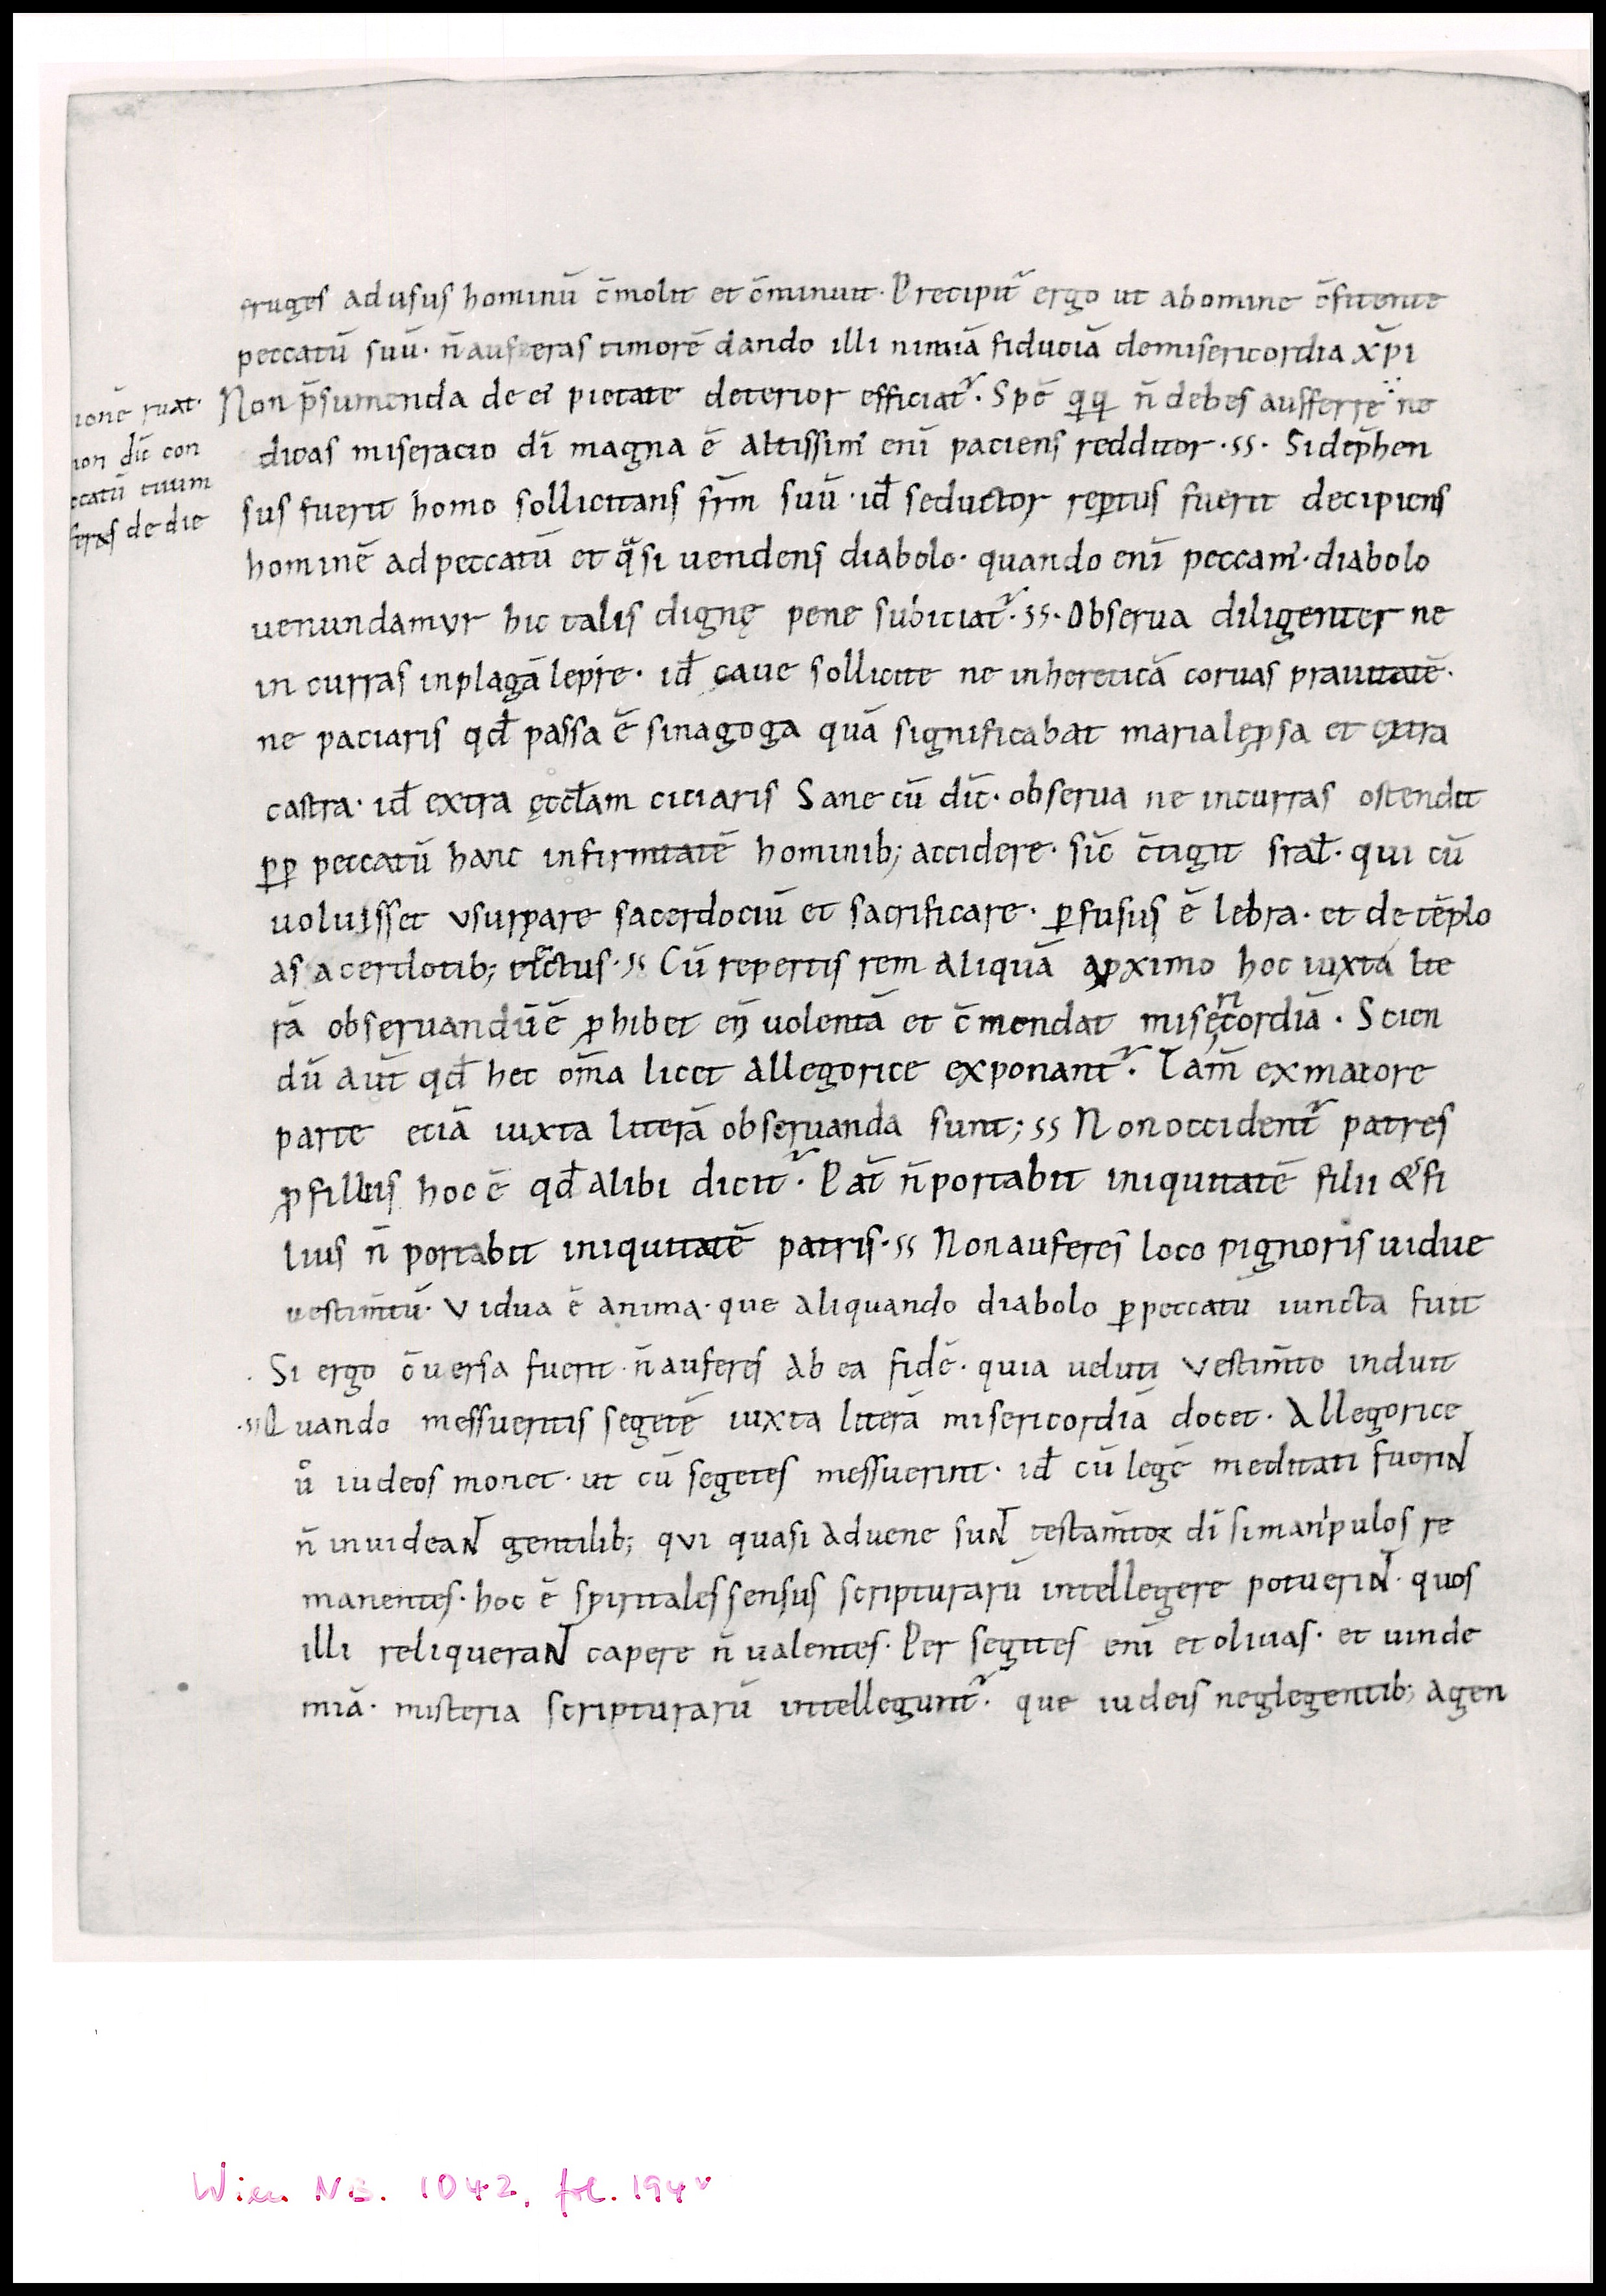 fruges ad usus hominū c̄molit et c̄minuit· Precipit᷑ ergo ut abomine c̄fitente
peccatū suū· n̄ aufferas timorē dando illi nimiā fiduciā demisericordia xp̄i
Non p̄sumenda de ei᾽ pietate deterior efficiat᷑· Spē qͥqͥ n̄ debes aufferre ne
dicas miseracio dī magna ē altissim᾽ enī paciens redditor·ss· Sidep̄hen
sus fuerit homo sollicitans fr̄m suū· id̄ seductor rep̱tus fuerit decipiens
hominē ad peccatū et qͣsi uendens diabolo· quando enī peccam᾽· diabolo
uenundamur hic talis dignę pene subiciat᷑·ss· Observa diligenter ne
in curras inplagā lepre· id̄ caue sollicite ne inhereticā corruas prauitatē·
ne paciaris qd̄ passa ē sinagoga quā significabat maria lep̱sa et extra
castra· id̄ extra ęccl̄am eiciaris Sane cū dic̄· obserua ne incurras ostendit
ꝓp peccatū hanc infirmitatē hominib; accidere· sic̄ c̄tigit sral̄· qui cū
uoluisset usurpare sacerdociū et sacrificare· ꝑfusus ē lebra· et de tēplo
asacerdotib; eiectus·ss Cū repertis rem aliquā aꝓximo hoc iuxta litte
rā obseruandū ē ꝓhibet en̄ uolentā et c̄mendat misericordiā· Scien
dū aut̄ qd̄ hec om̄a licet allegorice exponant᷑· Tam̄ exmaiore
parte eciā iuxta literā obseruanda sunt; ss Non occident᷑ patres
ꝓ filiis hoc ē qd̄ alibi dicit᷑· Pat̄ n̄ portabit iniquitatē filii & fi
lius n̄ portabit iniquitatē patris·ss Non auferes loco pignoris uidue
uestim̄tū· Vidua ē anima· que aliquando diabolo ꝑ peccatū iuncta fuit
Si ergo c̄uersa fuerit· n̄ auferes ab ea fidē· quia ueluti vestim̄to induit
·ss Quando messueritis segetē iuxta literā misericordiā docet· Allegorice
uͦ iudeos monet· ut cū segetes messuerint· id̄ cū legē meditati fuerint
n̄ inuideant gentilib; qui quasi aduene sunt testam̄toꝝ dī si manipulos re
manentes· hoc ē spiritales sensus scripturarū intellegere potuerint· quos
illi reliquerant capere n̄ ualentes· Per segites enī et oliuas· et uinde
miā· misteria scripturarū intellegunt᷑· que iudeis neglegentib; agen
ionē ruat·
non dic̄ con
ccatū tuum
feras de die
Wien NB. 1042, fol. 194v